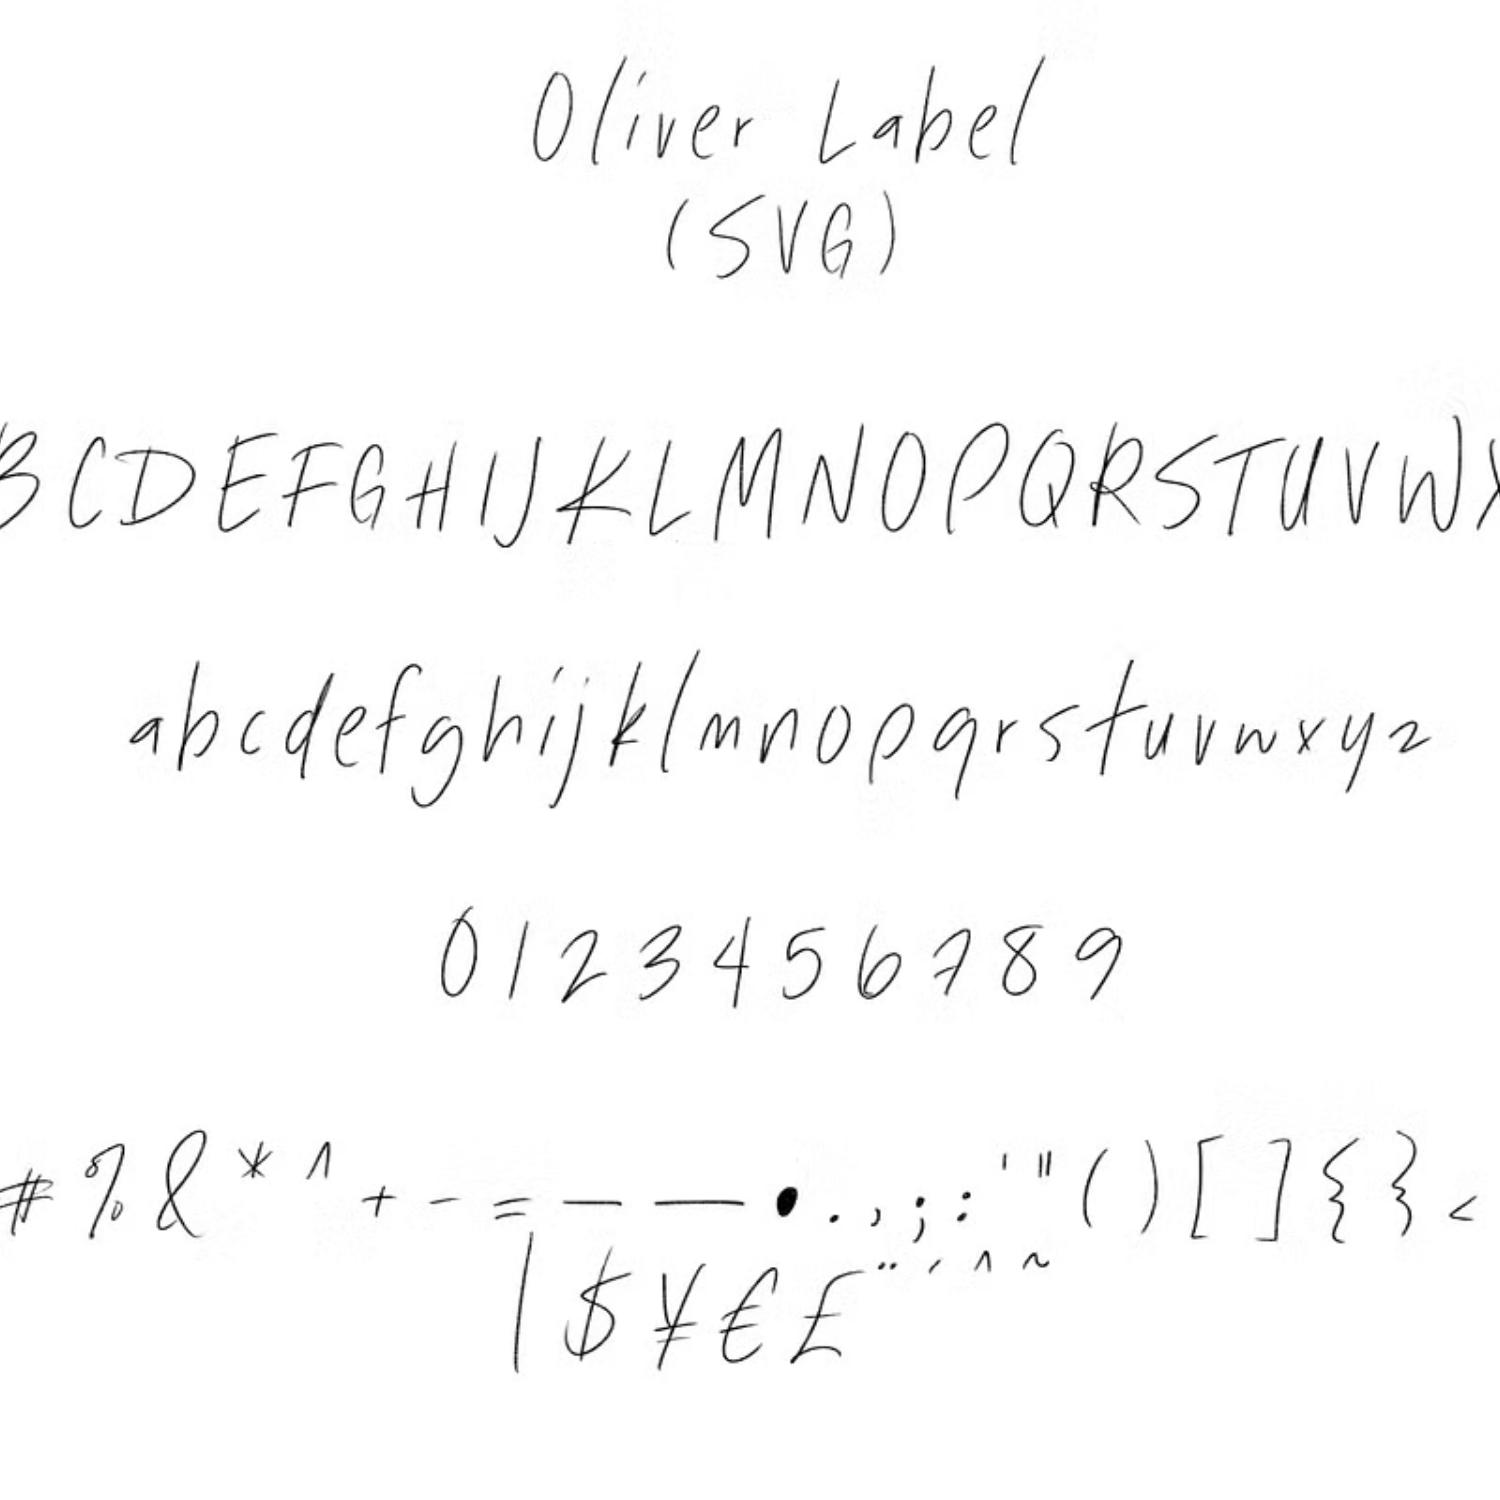 Oliver Label
(SVG)
BCDEFGHIJKLMNOPQRSTUVWX
abcdefghijklmnopqrstuvwxyz
0123456789
#%&*^+-=–—•.,;:'"()[]{}<
|$¥€£¨´^~